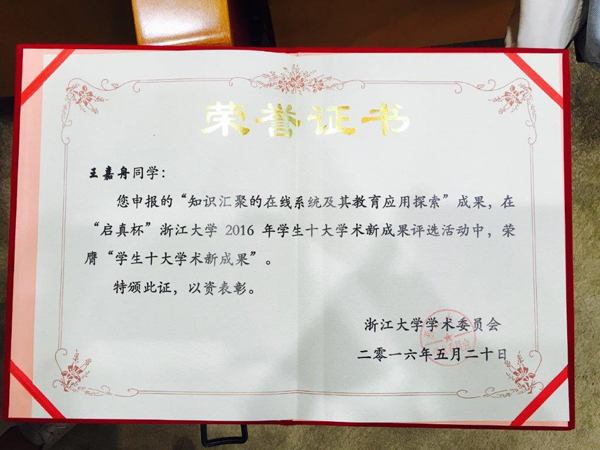 荣誉证书
王嘉舟同学：
您申报的“知识汇聚的在线系统及其教育应用探索”成果，在
“启真杯”浙江大学 2016 年学生十大学术新成果评选活动中，荣
膺“学生十大学术新成果”。
特颁此证，以资表彰。
浙江大学学术委员会
二零一六年五月二十日